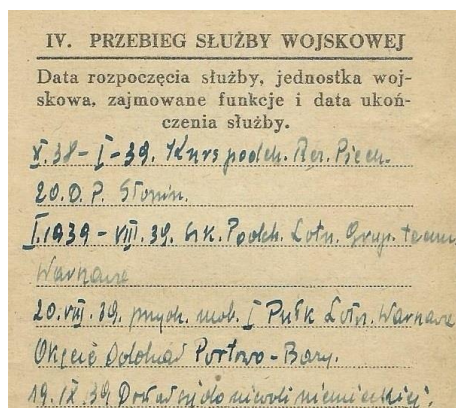 IV. PRZEBIEG SŁUŻBY WOJSKOWEJ
Data rozpoczęcia służby, jednostka woj-
skowa, zajmowane funkcje i data ukoń-
czenia służby.
X.38-I-39. Kurs podch. Rez. Piech.
20.D.P. Słonim.
I.1939-VIII.39. Szk. Podch. Lotn. Grup. techn.
Warszawa
20.VIII.39. mob. I Pułk Lotn. Warszawa
Okęcie Portowo-Bazy.
19.IX.39 do niewoli niemieckiej.